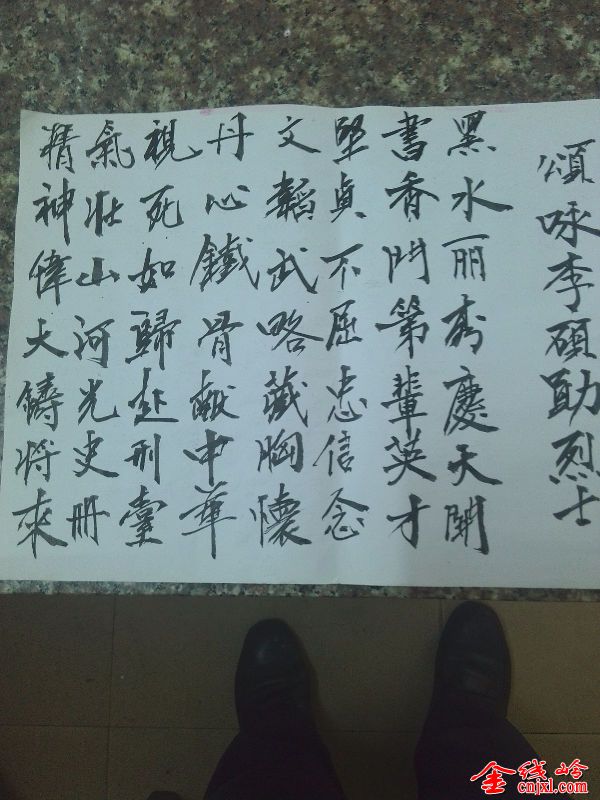 頌咏李碩勛烈士
黑水丽秀慶天開
書香門第輩英才
堅貞不屈忠信念
文韜武略藏胸懷
丹心鐵骨献中華
視死如歸赴刑臺
氣壯山河光史册
精神偉大鑄將來
金线岭
cnjxl.com